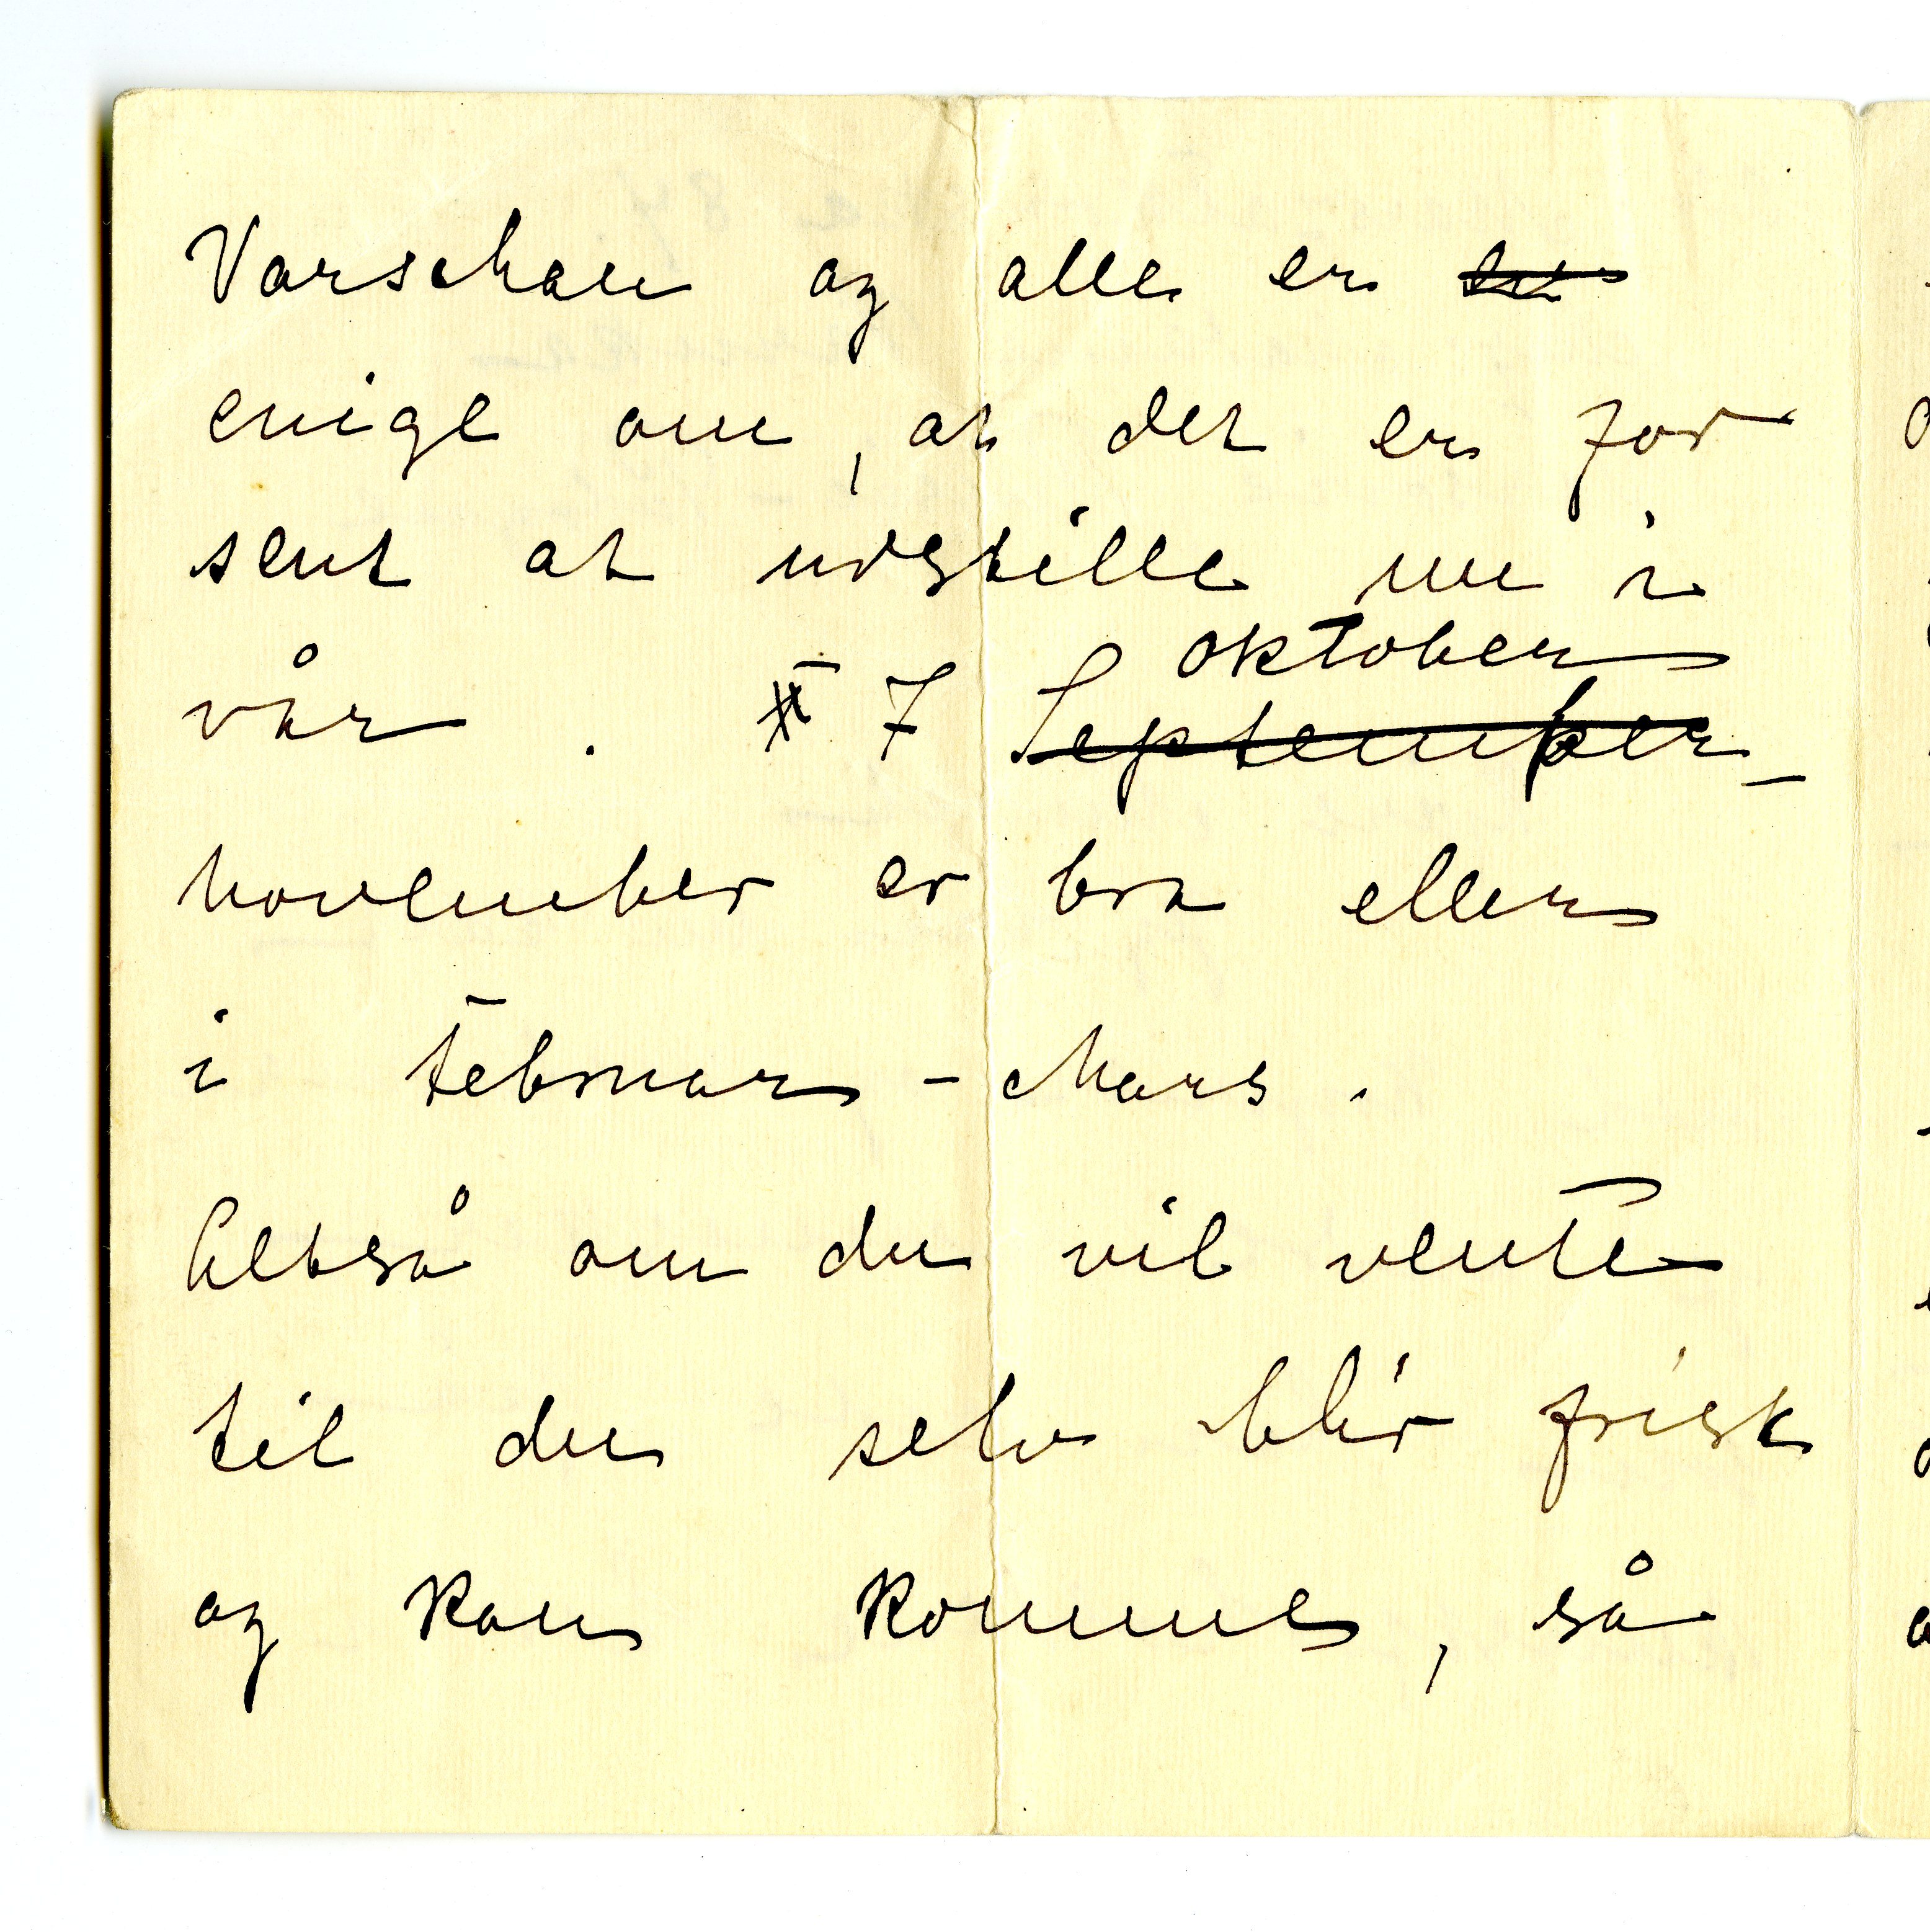 Varschau og alle er
enige om, at det er for
sent at udstille nu i
oktober
vår. I September –
november er bra eller
i Februar – Mars.
Altså om du vil vente
til du selv blir frisk
og kan komme, så